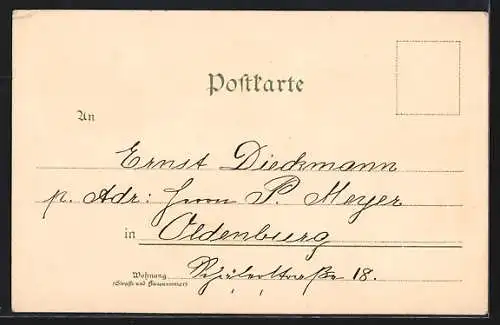 Postkarte
An
Ernst Dieckmann
p. Adr: Herrn P. Meyer
in Oldenburg
Wohnung
(Straße und Hausnummer)
Schäferstraße 18.